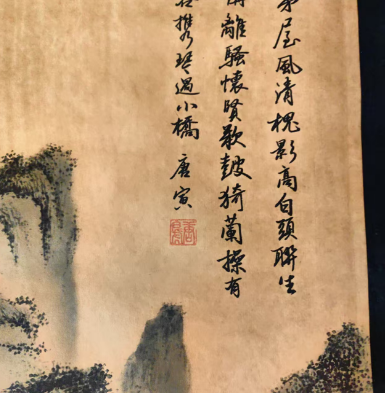 茅屋風清槐影高白頭聯坐
離騷懷賢歌鼓猗蘭操有
攜琴過小橋 唐寅